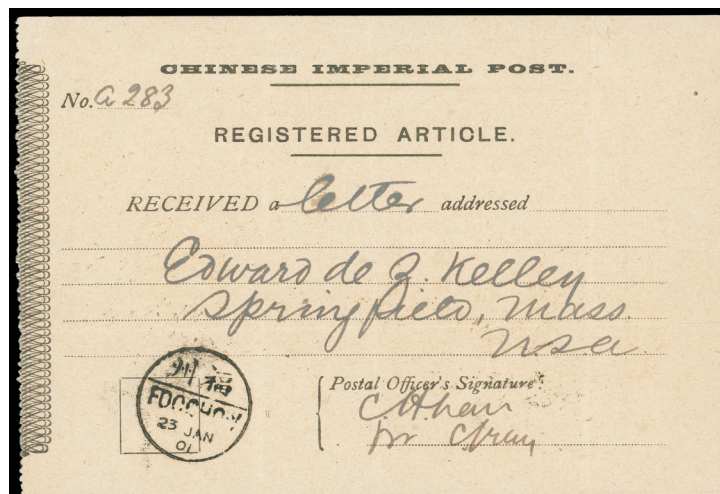 CHINESE IMPERIAL POST.
No. a 283
REGISTERED ARTICLE.
RECEIVED a letter addressed
Edward de Z. Kelley
Springfield, Mass
USA
州福
FOOCHOW
23 JAN
01
Postal Officer's Signature: